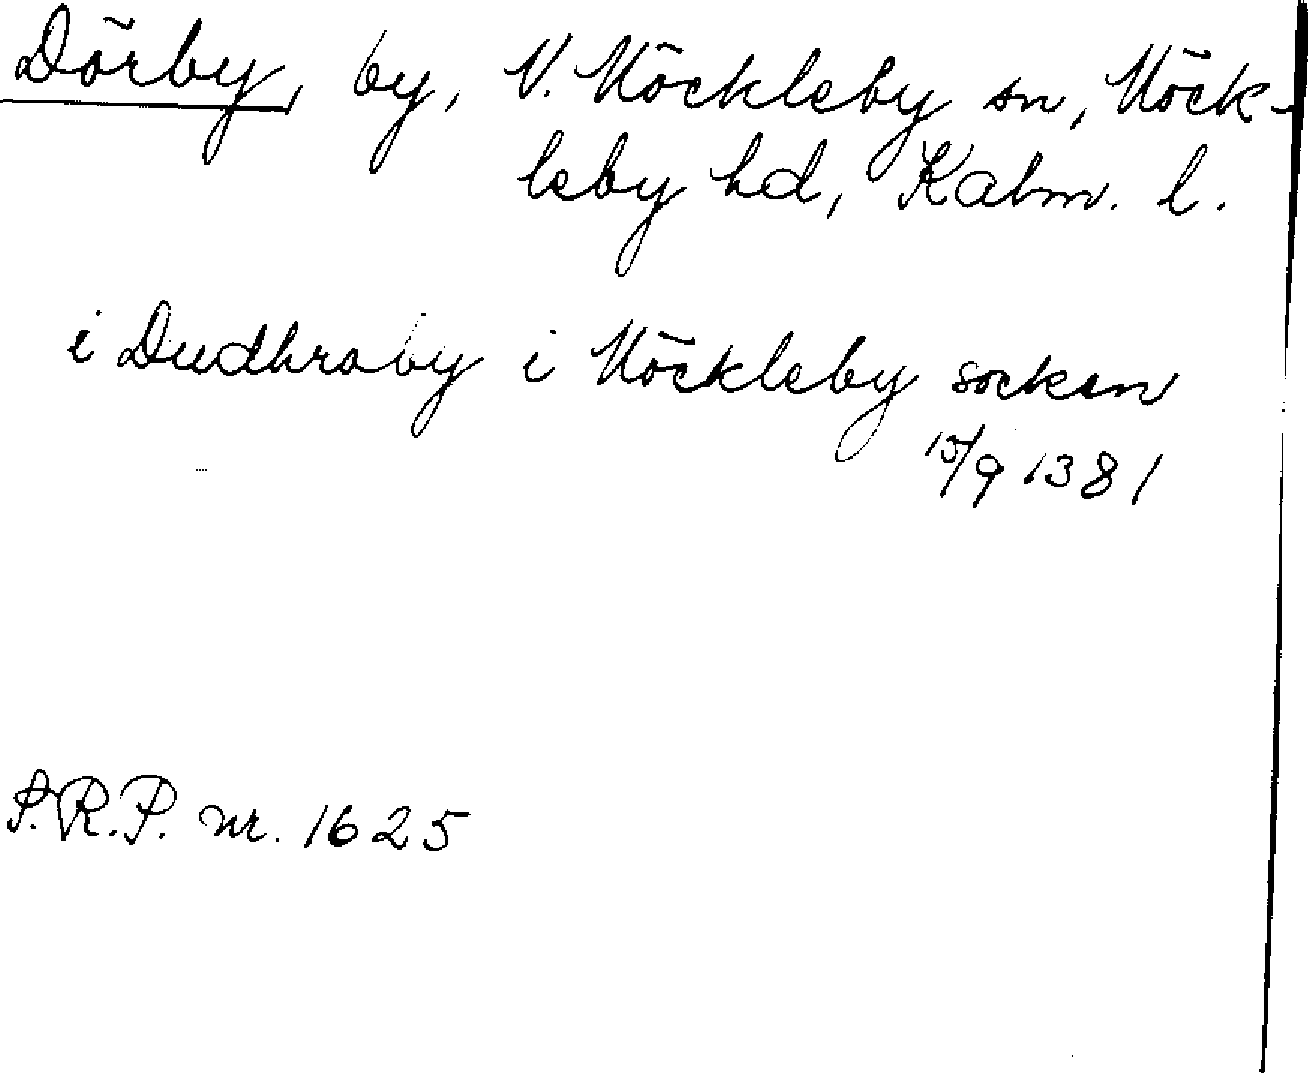 Dörby, by, V. Möckleby sn, Möck-
leby hd, Kalm. l.
i Dudhraby i Möckleby socken
15/9 1381
S.R.P. nr. 1625